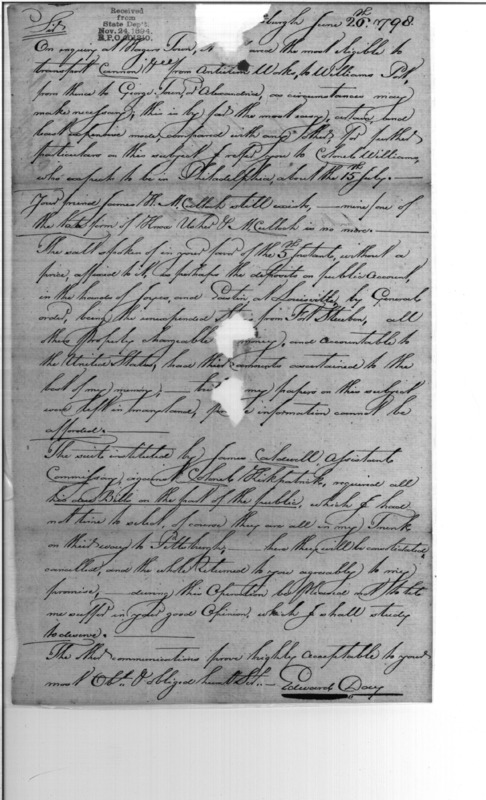 Received
from
State Dep't.
Nov. 24, 1894,
Sir
burgh June 26th 1798.
On inquiry at Hagers Town, the most eligible to
transport Cannon &ca from Antietam Works, to Williams Port,
from thence to George Town, or Alexandria, as circumstances may
make necessary, this is by far the most easy, certain and
least expensive mode, compared with any other, for further
particulars on this subject I refer you to Colonel Williams,
who expects to be in Philadelphia, about the 15th July.
Your friend James McCulloch still exists, — mine, one of
the late firm of & McCulloch is no more.
The salt spoken of in your favor of the 5th Instant, without a
price, affixed to it, is perhaps the deposits on public account,
in the hands of Joyes, and Pastin, at Louisville, by Generals
order, being the unexpended from Fort Steuben, all
this property chargeable and accountable to
the United States, have their amounts ascertained to the
best of my memory, — my papers on this subject
were left in Maryland, information cannot be
afforded.
The suit instituted by James Caldwell Assistant
Commissary, against Colonel Kirkpatrick, required all
his due Bills on the part of the public, which I had
not time to select, of course they are all in my Trunk,
on their way to Pittsburgh, — here they will be
cancelled, and the whole returned to you agreeably to my
promise, — during this Operation be pleased not to let
me suffer in your good Opinion, which I shall study
to deserve.
The communications prove highly acceptable to your
most Obt. & obliged humb Sert. — Edward Day